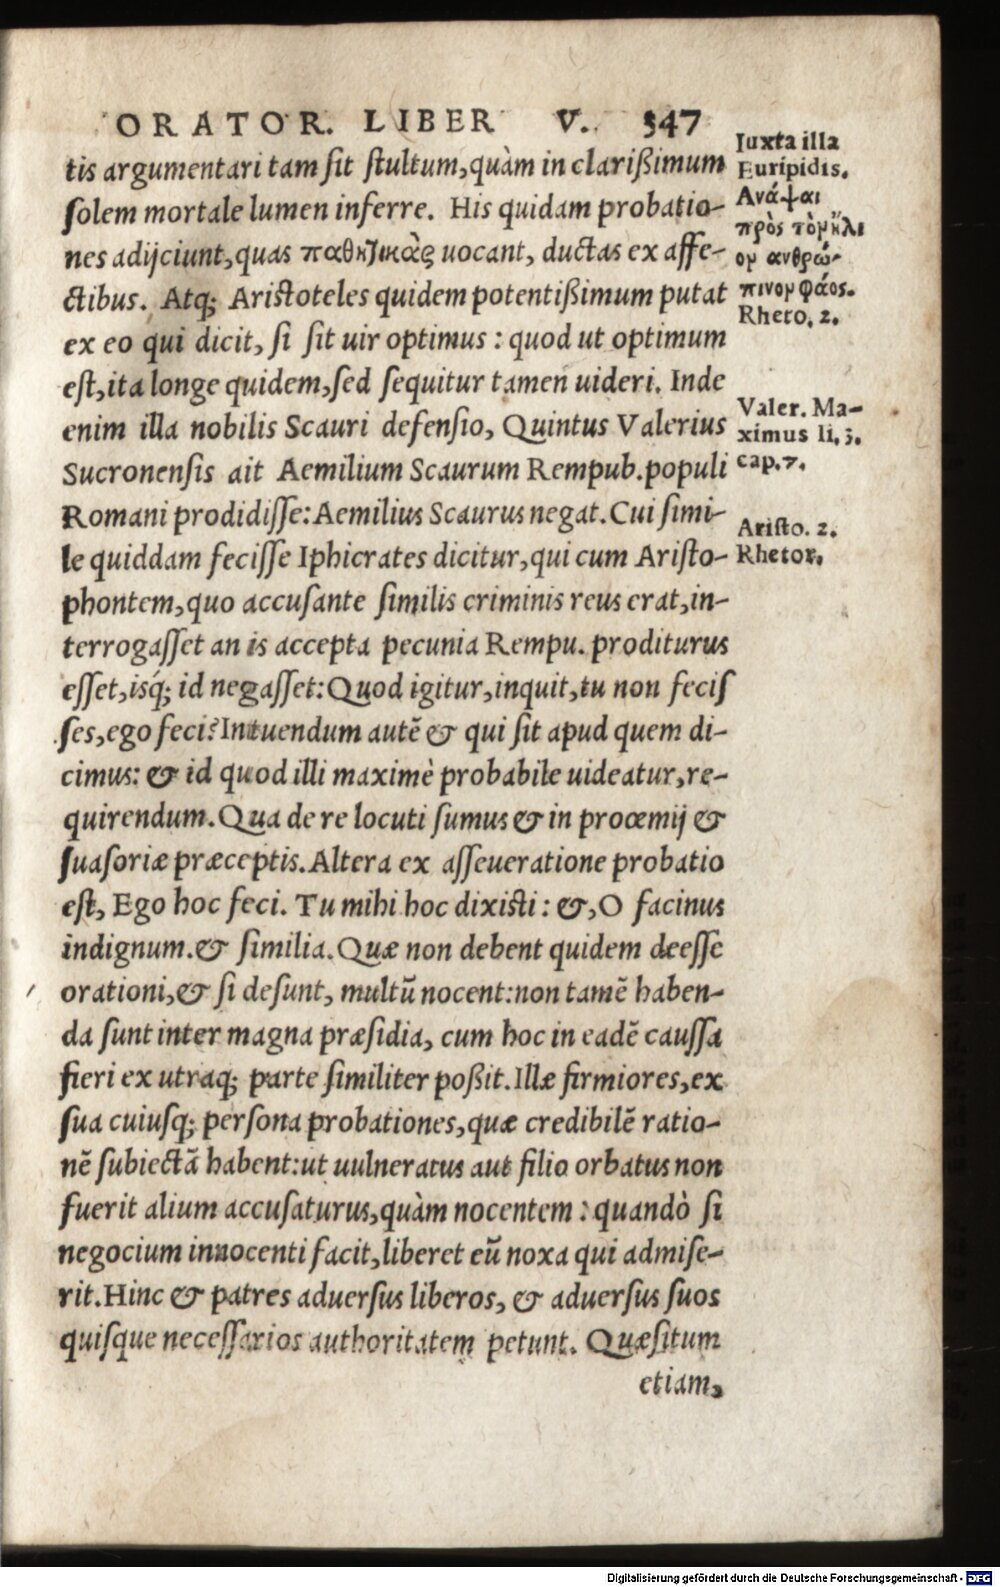 ORATOR. LIBER V. 347
tis argumentari tam sit stultum, quàm in clarißimum
solem mortale lumen inferre. His quidam probatio-
nes adijciunt, quas παθητικὰς uocant, ductas ex affe-
ctibus. Atq; Aristoteles quidem potentißimum putat
ex eo qui dicit, si sit uir optimus: quod ut optimum
est, ita longe quidem, sed sequitur tamen uideri. Inde
enim illa nobilis Scauri defensio, Quintus Valerius
Sucronensis ait Aemilium Scaurum Rempub. populi
Romani prodidisse: Aemilius Scaurus negat. Cui simi-
le quiddam fecisse Iphicrates dicitur, qui cum Aristo-
phontem, quo accusante similis criminis reus erat, in-
terrogasset an is accepta pecunia Rempu. proditurus
esset, isq́; id negasset: Quod igitur, inquit, tu non fecis
ses, ego feci? Intuendum autē & qui sit apud quem di-
cimus: & id quod illi maximè probabile uideatur, re-
quirendum. Qua de re locuti sumus & in proœmij &
suasoriæ præceptis. Altera ex asseueratione probatio
est, Ego hoc feci. Tu mihi hoc dixisti: &, O facinus
indignum. & similia. Quæ non debent quidem deesse
orationi, & si desunt, multū nocent: non tamē haben-
da sunt inter magna præsidia, cum hoc in eadē caussa
fieri ex utraq; parte similiter poßit. Illæ firmiores, ex
sua cuiusq; persona probationes, quæ credibilē ratio-
nē subiectā habent: ut uulneratus aut filio orbatus non
fuerit alium accusaturus, quàm nocentem: quandò si
negocium innocenti facit, liberet eū noxa qui admise-
rit. Hinc & patres aduersus liberos, & aduersus suos
quisque necessarios authoritatem petunt. Quæsitum
etiam,
Iuxta illa
Euripidis.
Ανάψαι
πρὸς τὸν ἥλι
ον ανθρώ-
πινον φάος.
Rheto. 2.
Valer. Ma-
ximus li. 3.
cap. 7.
Aristo. 2.
Rhetor.
Digitalisierung gefördert durch die Deutsche Forschungsgemeinschaft - DFG